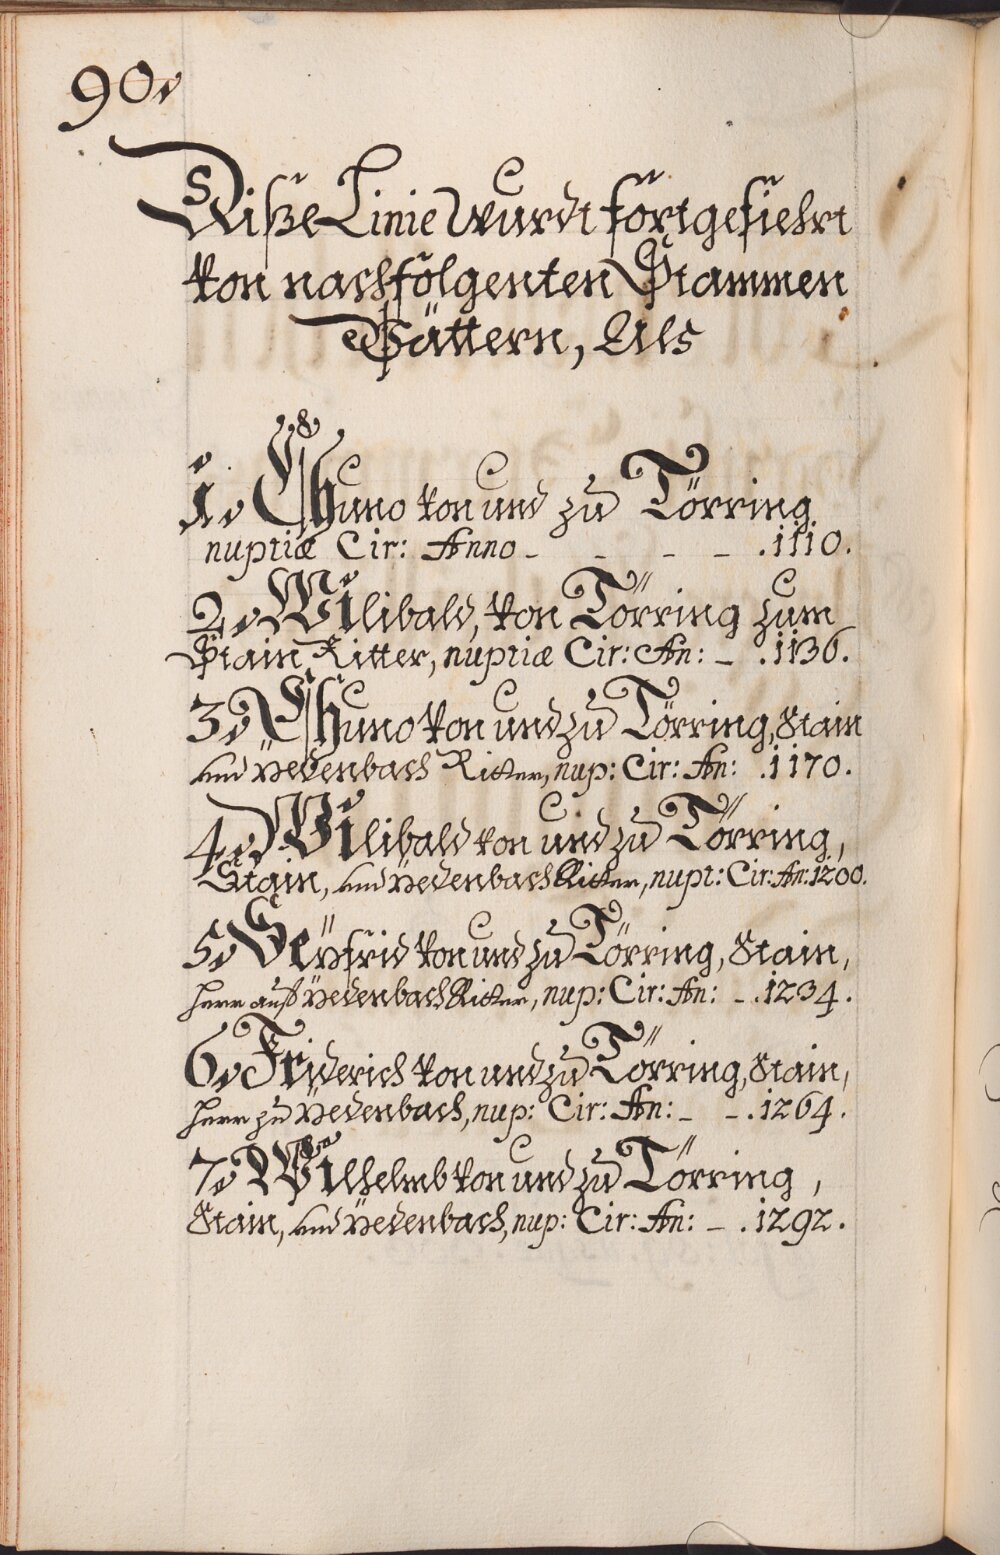 90.
Diße Linie wurdt fortgefiehrt
von nachfolgenten Stammen
Vättern, Als
1. Chuno von und zu Törring
nuptiæ Cir: Anno - - - - .1110.
2. Wilibald, von Törring zum
Stain Ritter, nuptiæ Cir: An: - .1136.
3. Chuno von und zu Törring, Stain
und Yedenbach Ritter, nup: Cir: An: .1170.
4. Wilibald von und zu Törring,
Stain, und Yedenbach Ritter, nupt: Cir: An: 1200.
5. Seÿfrid von und zu Törring, Stain,
Herr auf Yedenbach Ritter, nup: Cir: An: - .1234.
6. Friderich von und zu Törring, Stain,
Herr zu Yedenbach, nup: Cir: An: - - .1264.
7. Wilhelmb von und zu Törring,
Stain, und Yedenbach, nup: Cir: An: - .1292.